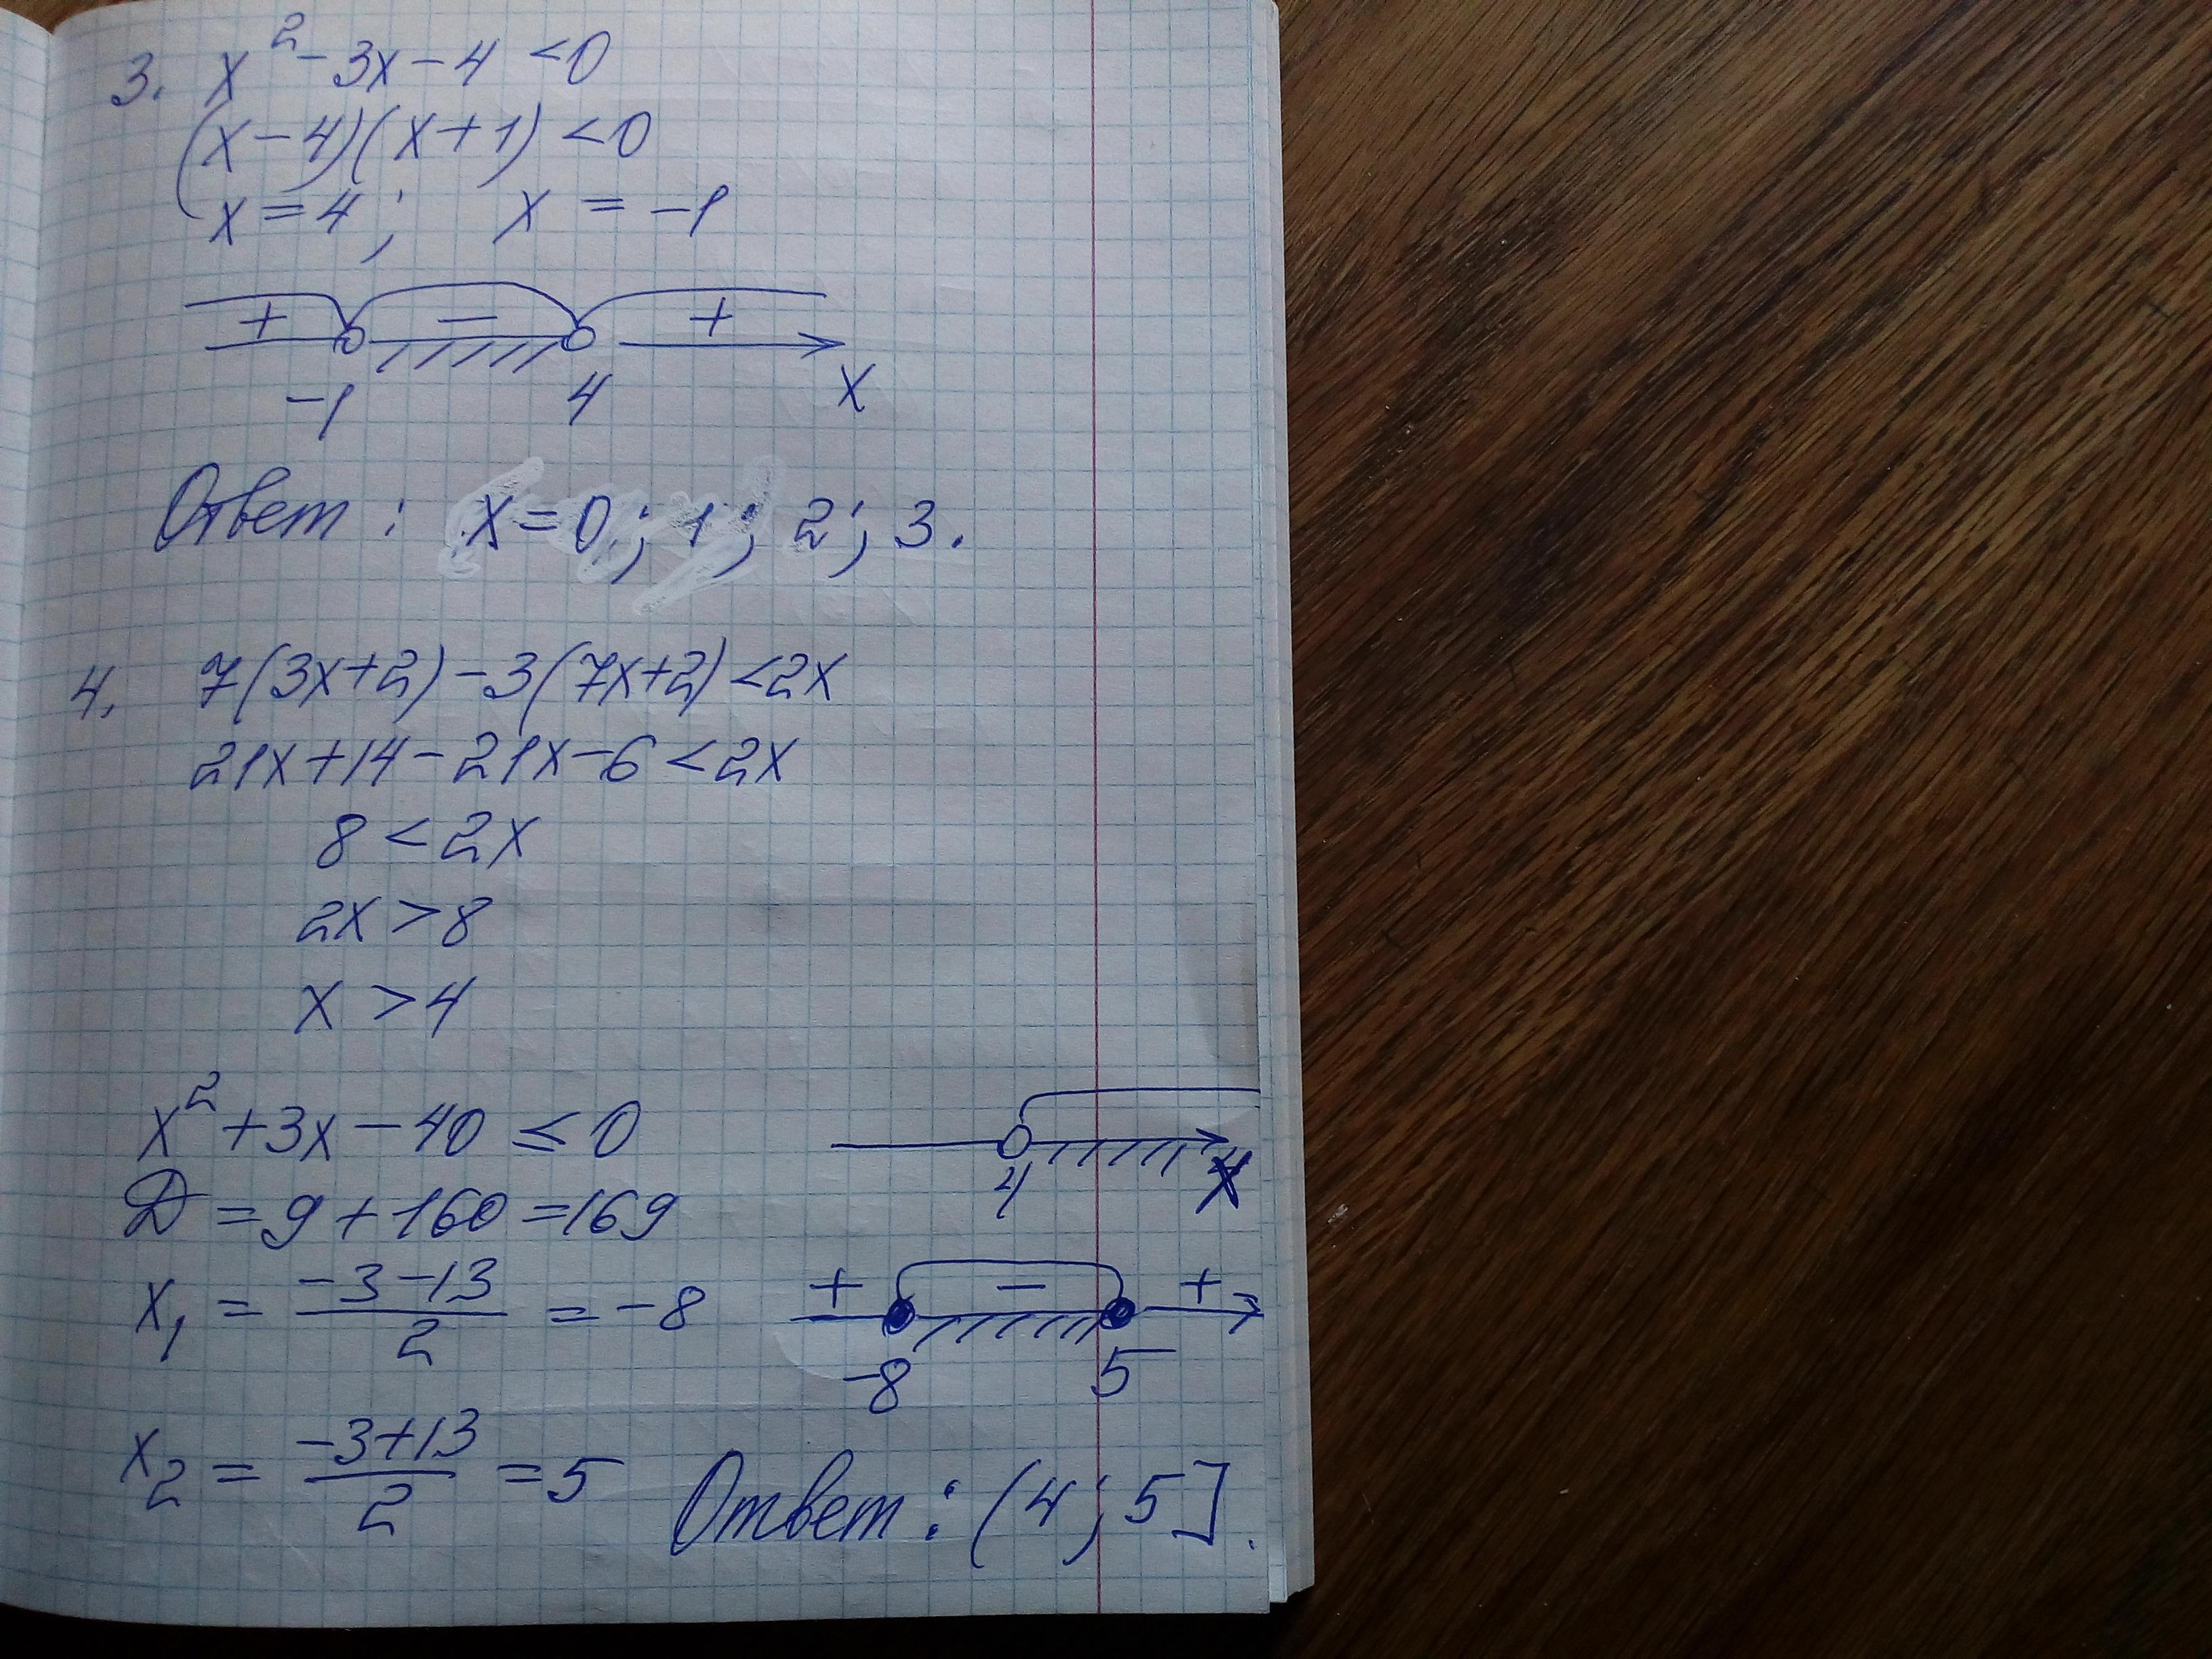 3. x² - 3x - 4 < 0
(x - 4)(x + 1) < 0
x = 4; x = -1
+ - +
-1 4 x
Ответ: x = 0; 1; 2; 3.
4. 7(3x+2) - 3(7x+2) < 2x
21x + 14 - 21x - 6 < 2x
8 < 2x
2x > 8
x > 4
x² + 3x - 40 ≤ 0
4 x
Д = 9 + 160 = 169
x₁ = (-3-13)/2 = -8
+ - +
-8 5
x₂ = (-3+13)/2 = 5
Ответ: (4; 5].